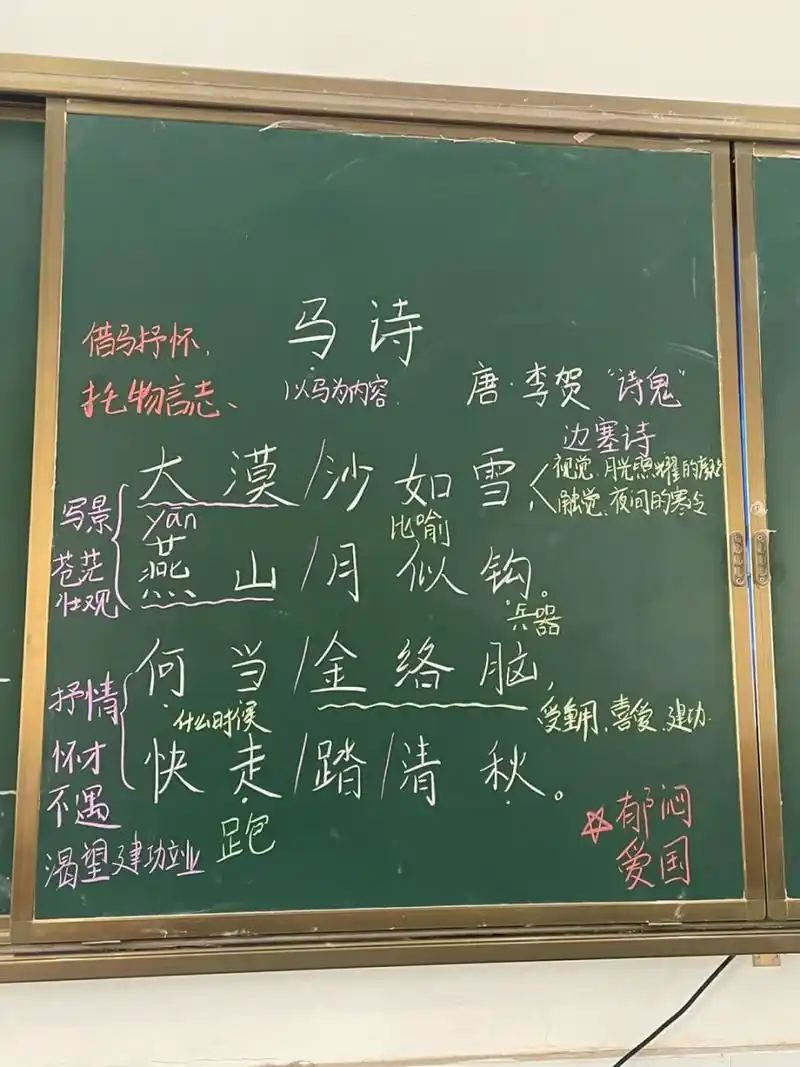 马诗
借马抒怀、
托物言志、
以马为内容
唐·李贺 "诗鬼"
边塞诗
大漠/沙如雪
视觉、月光照耀的
触觉、夜间的寒冷
写景
苍茫
壮观
yān
比喻
燕山/月似钩。
兵器
何当/金络脑，
什么时候
受重用、喜爱、建功
抒情
怀才
不遇
渴望建功立业
快走/踏/清秋。
跑
☆郁闷
爱国